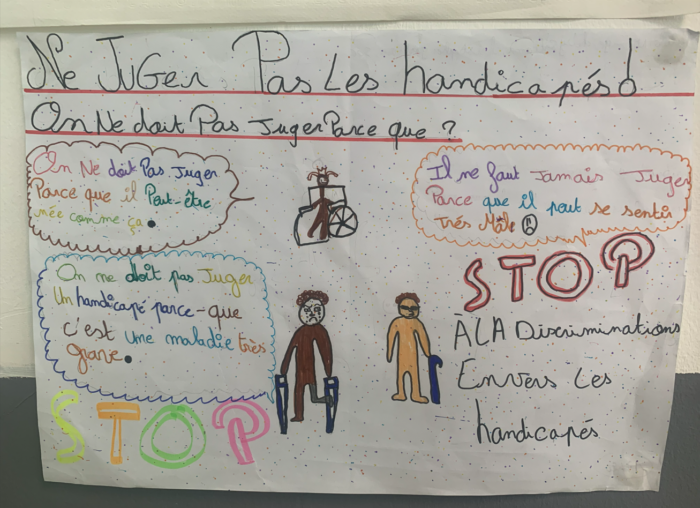 Ne Juger Pas Les handicapés!
On Ne doit Pas Juger Parce que ?
On Ne doit Pas Juger
Parce que il Peut-être
née comme ça.
Il ne faut Jamais Juger
Parce que il peut se sentir
Trés Male
On ne doit pas Juger
Un handicapé parce-que
c'est une maladie très
grave.
STOP
STOP
À LA Discriminations
Envers Les
handicapés